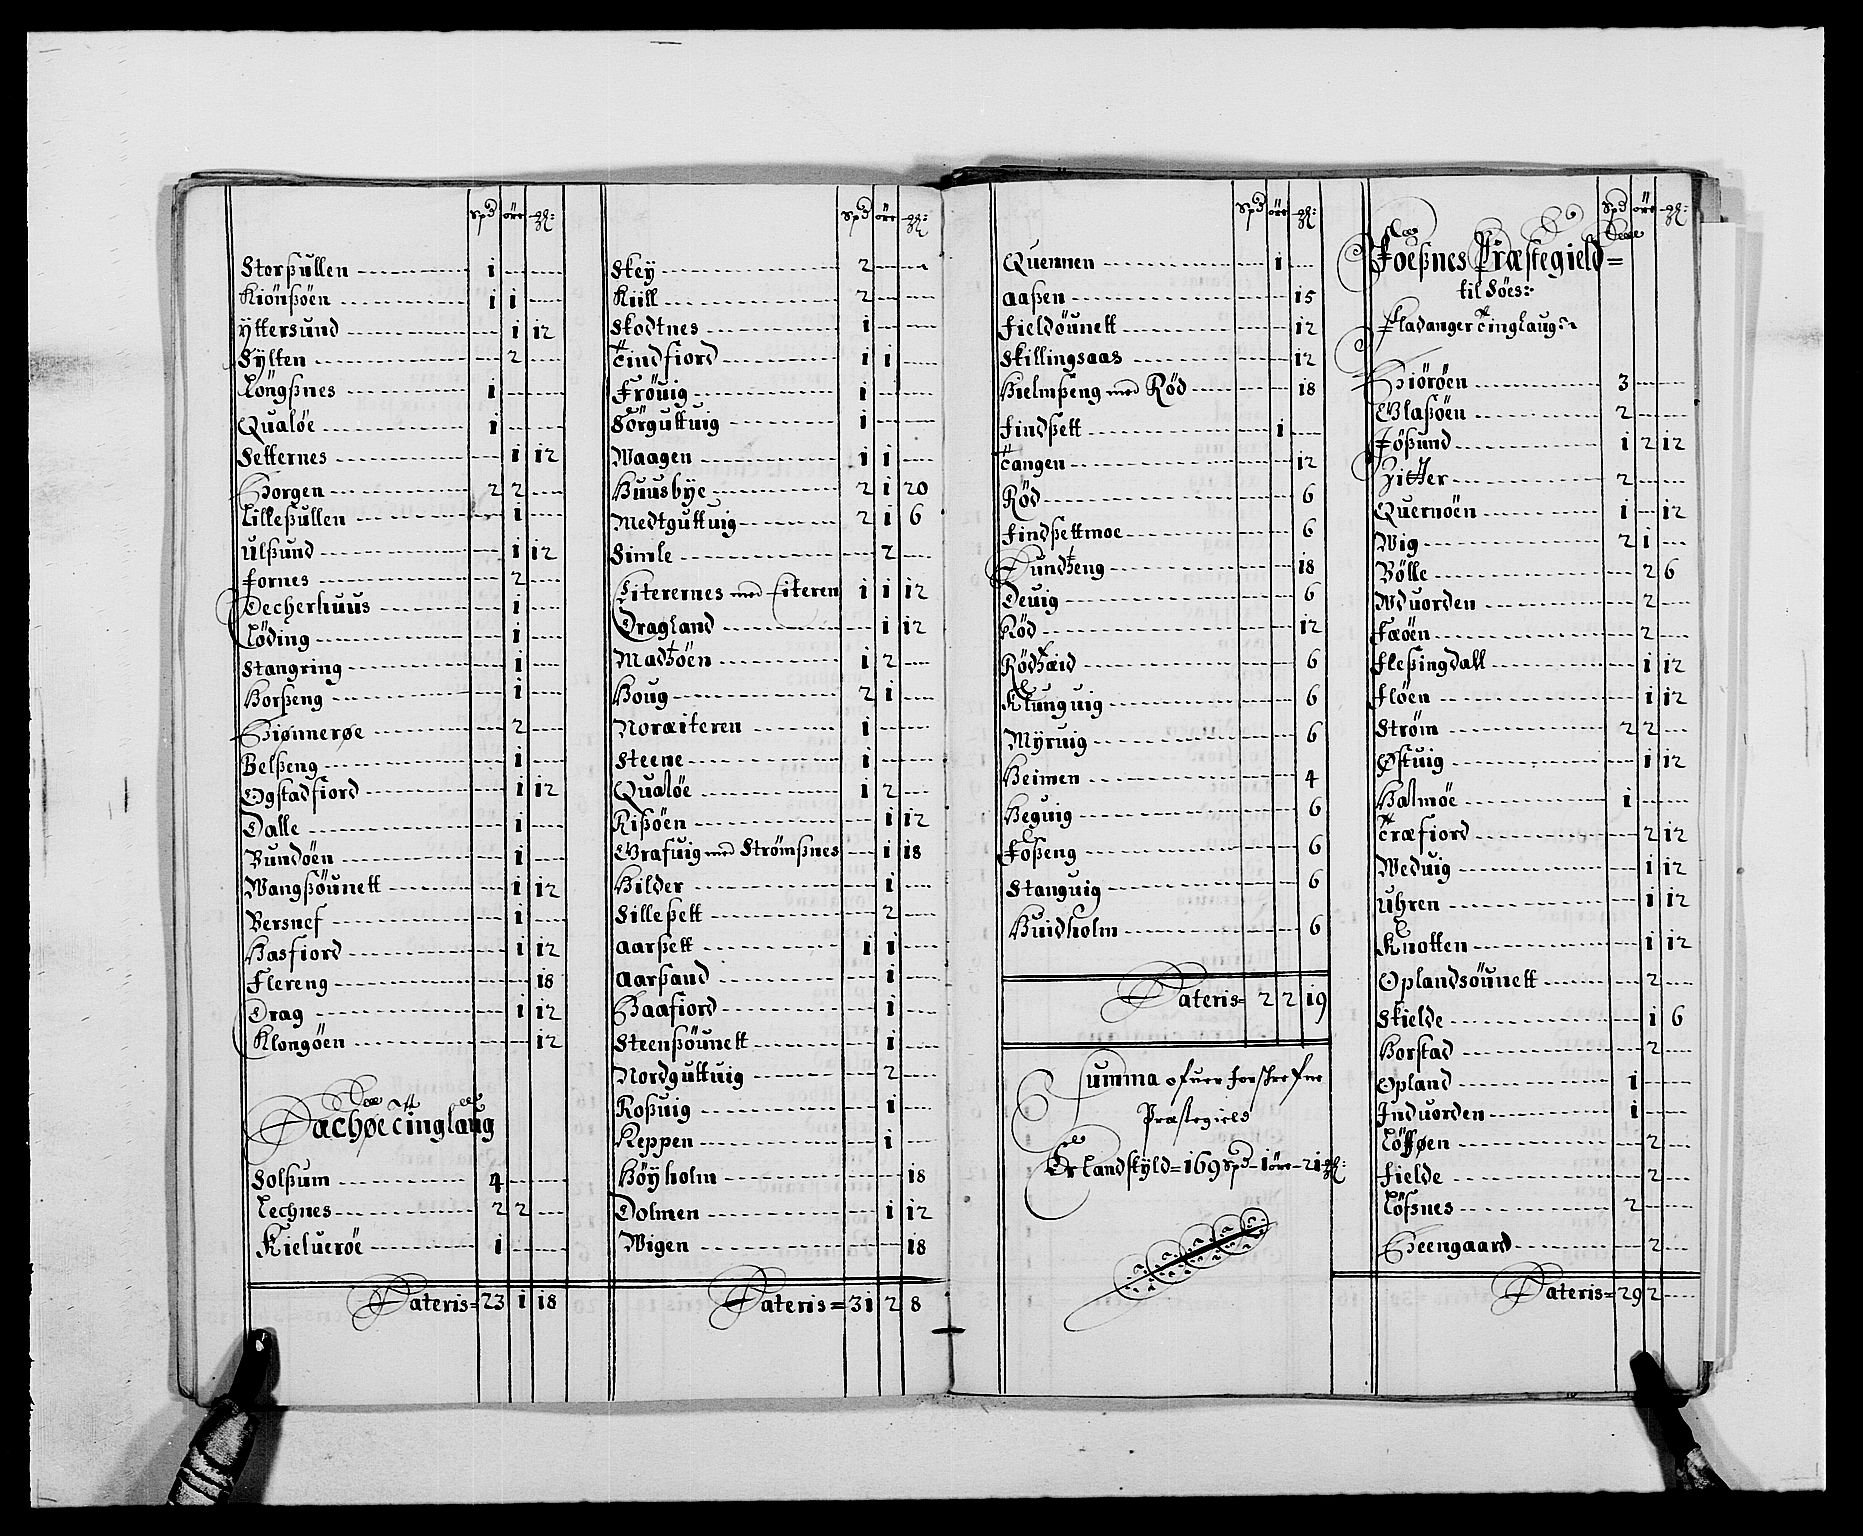 Spd öre
Storsßullen 1
Kiönßöen 1 1
Yttersund 1 12
Sÿlten 2
Löngßnes 1
Qualöe 1
Setternes 1 12
Horgen 2 2
Lilleßullen 1
Ulßund 1 12
Fornes 2
Decherhuus 1
Löding 1
Stangring 1
Horßeng 1
Hiønnerøe 2
Belßeng 1
Ogstadfiord 1 12
Dalle 1
Bundöen 1
Wangßöunett 1 12
Bersnef 1
Hasfiord 1 12
Flereng 18
Drag 1 12
Klongöen 12
Dachøe Tinglaug
Solßum 4
Lechnes 2 2
Kieluerøe 1
Lateris= 23 1 18
Spd öre
Skey 2
Kiill 2
Skodtnes 1
Tindfiord 1 1
Fröuig 1
Sörguttuig 1
Waagen 1 1
Huusbÿe 2 1 20
Medtguttuig 2 1 6
Simle 2
Eiterernes med Eiteren 1 1 12
Dragland 1 12
Madsöen 1 2
Houg 2 1
Noræiteren 1
Steene 1
Qualöe 1 2
Rißöen 1 12
Grafuig med Strömßnes 1 18
Hilder 1
Silleßett 2
Aarßett 1 1
Aarßand 1
Haafiord 1
Steenßöunett 1
Nordguttuig 2
Roßuig 1
Keppen 1
Höÿholm 18
Dolmen 1 12
Wigen 18
Lateris= 31 2 8
Spd öre
Quennen 1
Aaßen 15
Fieldöunett 12
Skillingsaas 12
Hielmßeng med Rød 18
Findßett 1
Tangen 12
Rød 6
Findßettmoe 6
Sundseng 18
Deuig 6
Rød 12
Rödhæid 6
Klunguig 6
Mÿruig 6
Heimen 4
Heguig 6
Foßeng 6
Stanguig 6
Huidholm 6
Lateris= 2 2 19
Summa ofuer forskrefne
Præstegield
Er Landskÿld= 169 Spd- 1 öre- 21
Spd öre
Foeßnes Præstegield=
til Söes:
Fladanger Tinglaug:
Hiöröen 3
Glasöen 2
Jößund 1 2 12
Zitter 2
Quernöen 1 12
Wig 2 1
Bölle 2 6
Wduorden 2
Fæöen 2
Fleßingdall 1 12
Flöen 1 12
Ström 2 2
Østuig 1 12
Halmöe 1
Træfiord 2 12
Weduig 1 12
Uhren 1 12
Knotten 1 12
Oplandsöunett 2
Skielde 1 6
Horstad 2
Opland 1
Induorden 1
Löfføen 2
Fielde 2
Löfsnes 2
Heengaard 2
Lateris= 29 2